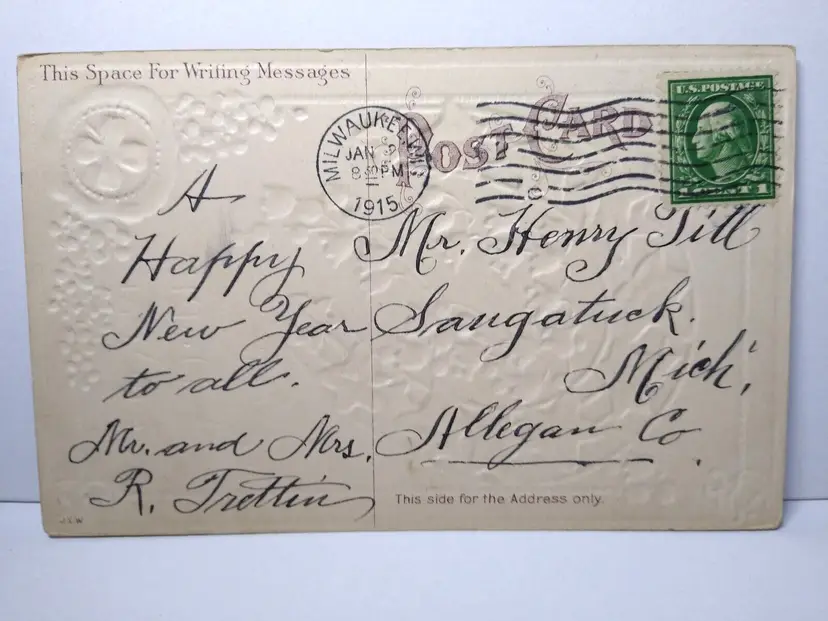 This Space For Writing Messages
POST CARD
MILWAUKEE, WIS.
JAN
PM
1915
U.S. POSTAGE
1
A
Happy
New Year
to all.
Mr. and Mrs.
R. Trettin
Mr. Henry Till
Saugatuck.
Mich,
Allegan Co.
This side for the Address only.